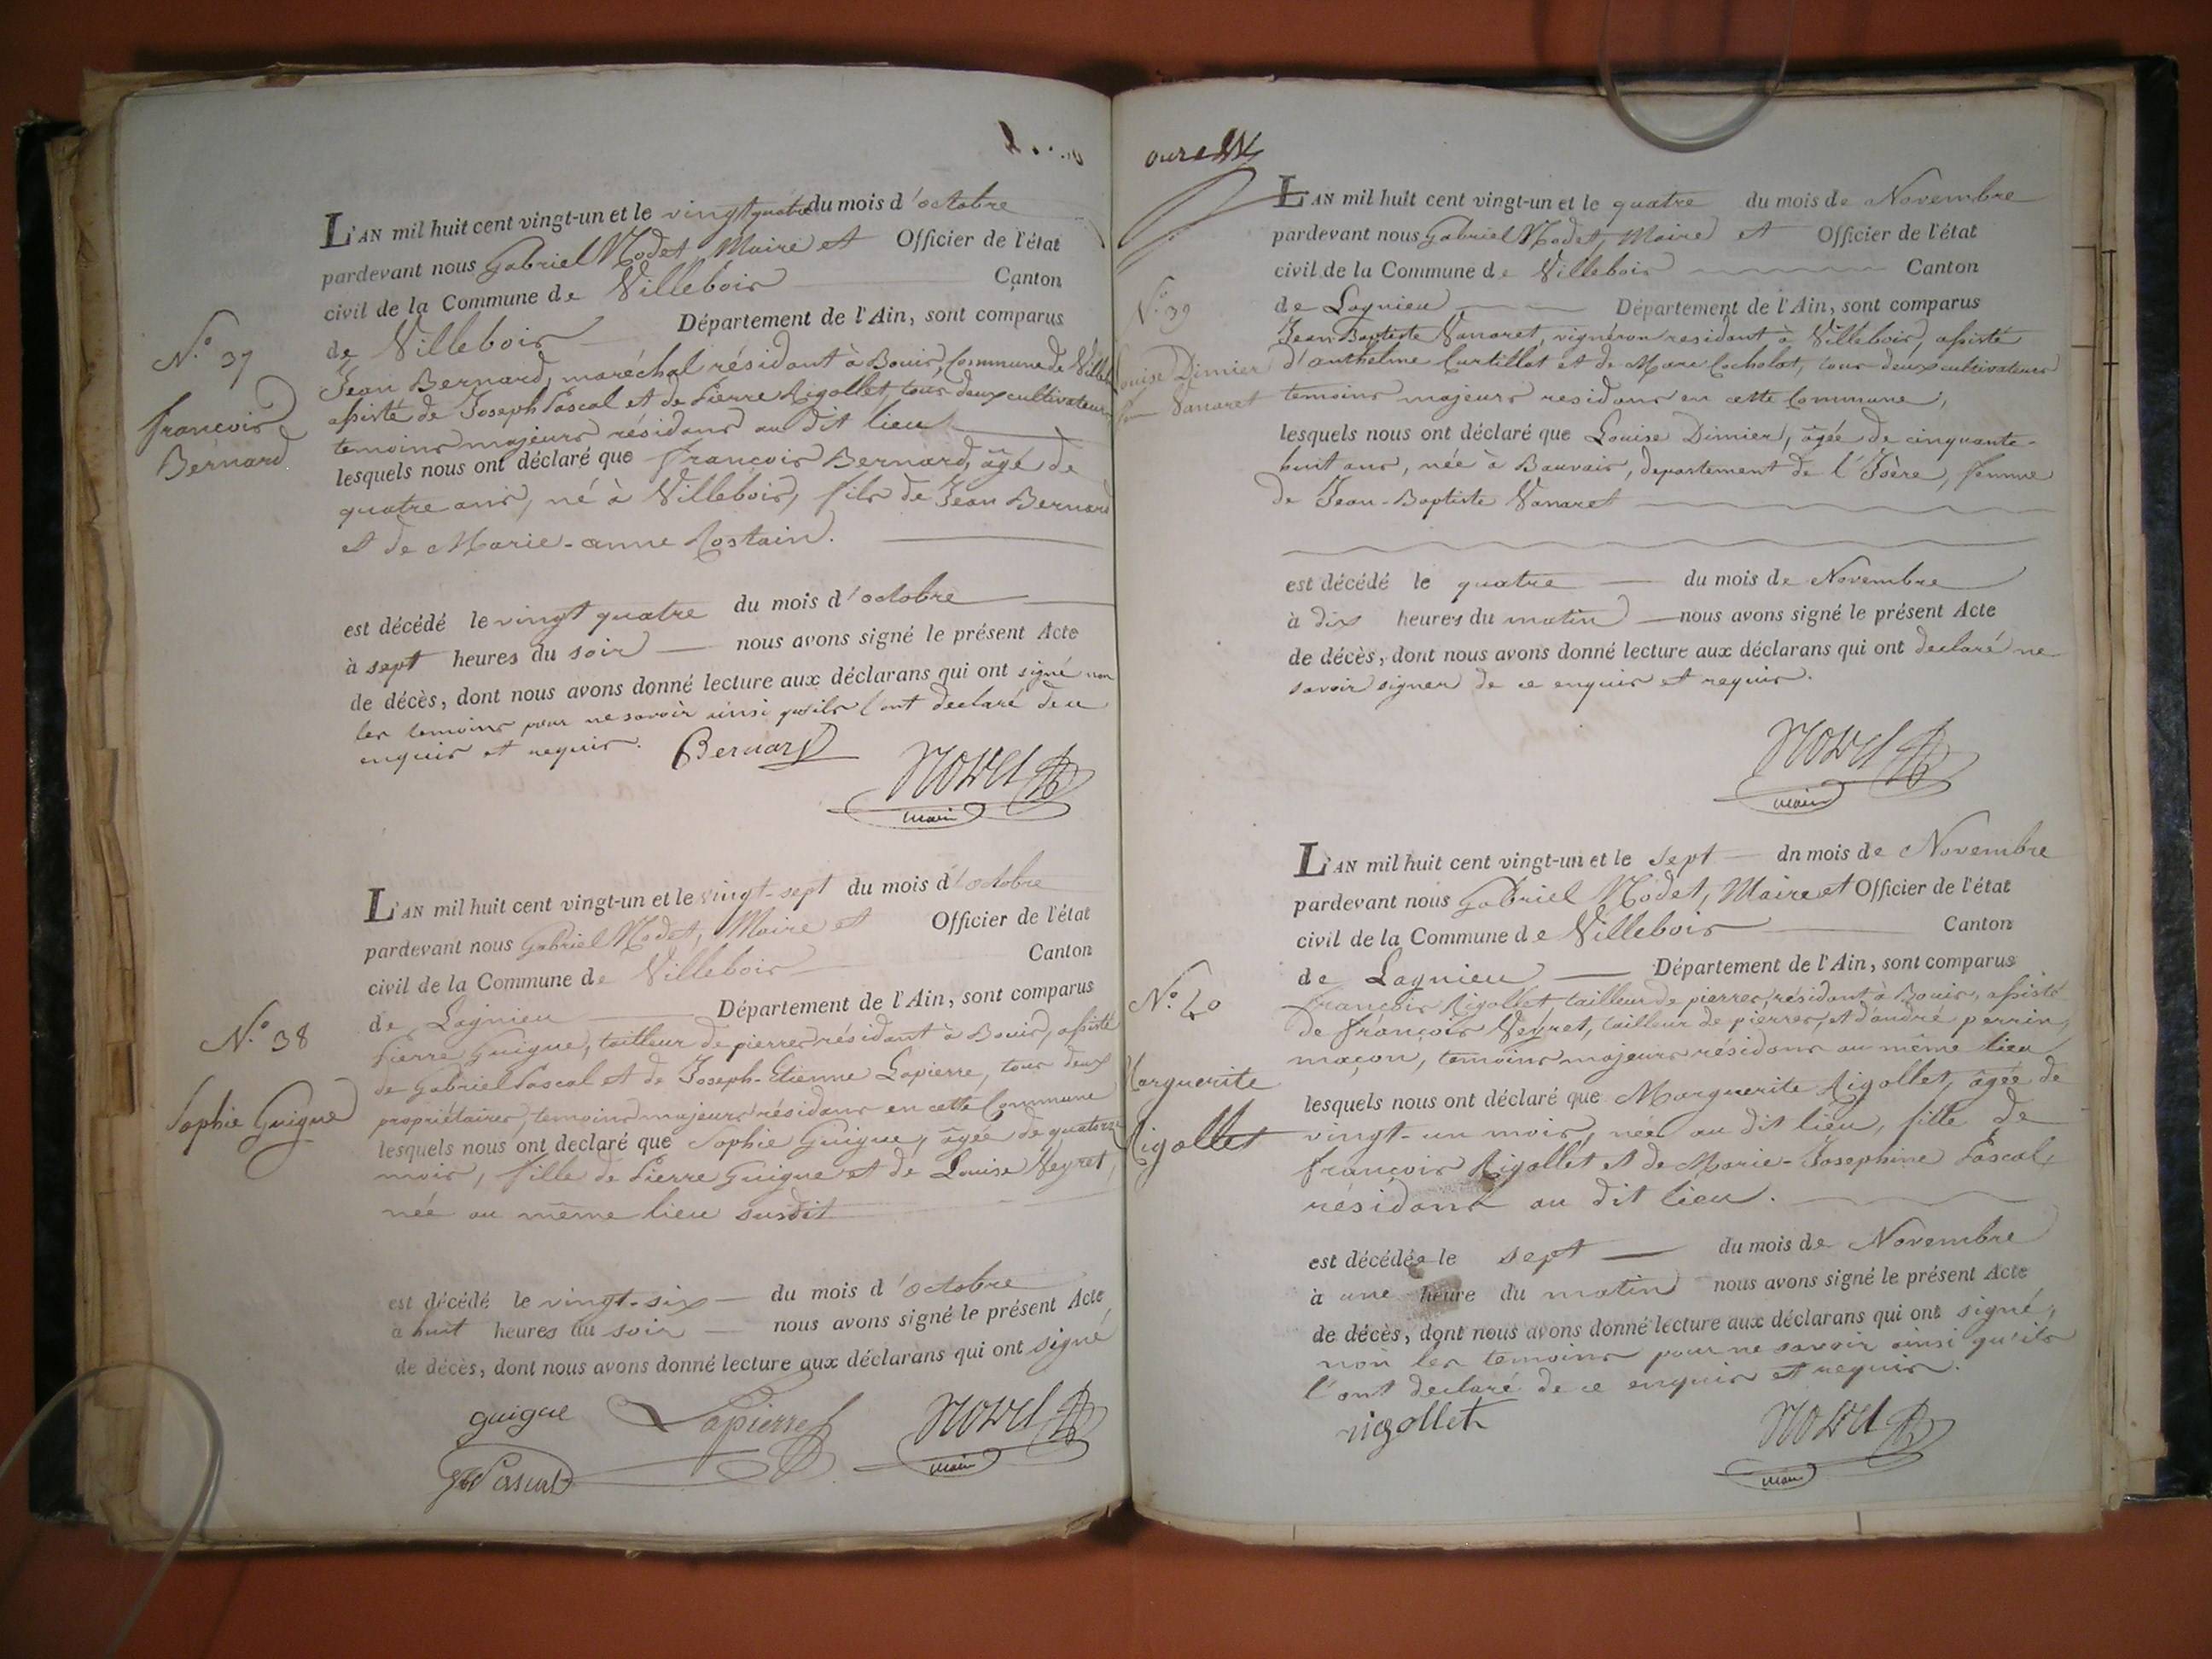 L'AN mil huit cent vingt-un et le vingt quatre du mois d'octobre
pardevant nous Gabriel Nodet, Maire et Officier de l'état
civil de la Commune de Villebois Canton
de Villebois Département de l'Ain, sont comparus
Jean Bernard, maréchal résidant à Bouis, Commune de Villeb
assisté de Joseph Pascal et de Pierre Rigollet, tous deux cultivateurs
temoins majeurs résidans au dit lieu
lesquels nous ont déclaré que françois Bernard, âgé de
quatre ans, né à Villebois, fils de Jean Bernard
et de Marie-anne Rostain.
N.o 37
françois
Bernard
est décédé le vingt quatre du mois d'octobre
à sept heures du soir nous avons signé le présent Acte
de décès, dont nous avons donné lecture aux déclarans qui ont signé non
les temoins pour ne savoir ainsi qu'ils l'ont declaré de ce
enquis et requis. Bernard
Nodet
maire
L'AN mil huit cent vingt-un et le vingt-sept du mois d'octobre
pardevant nous Gabriel Nodet, Maire et Officier de l'état
civil de la Commune de Villebois Canton
de Lagnieu Département de l'Ain, sont comparus
Pierre Guigue, tailleur de pierres résidant à Bouis, assisté
de Gabriel Pascal et de Joseph-Etienne Lapierre, tous deux
propriétaires, temoins majeurs résidans en cette Commune
lesquels nous ont declaré que Sophie Guigue, âgée de quatorze
mois, fille de Pierre Guigue et de Louise Neyret,
née au même lieu susdit
N.o 38
Sophie Guigue
est décédé le vingt-six du mois d'octobre
à huit heures du soir nous avons signé le présent Acte
de décès, dont nous avons donné lecture aux déclarans qui ont signé
guigue Lapierre Nodet
maire
Pascal
L'AN mil huit cent vingt-un et le quatre du mois de Novembre
pardevant nous Gabriel Nodet, Maire et Officier de l'état
civil de la Commune de Villebois Canton
de Lagnieu Département de l'Ain, sont comparus
Jean-Baptiste Vanaret, vigneron residant à Villebois, assisté
d'anthelme Curtillat et de Marc Cocholat, tous deux cultivateurs
temoins majeurs residans en cette Commune,
lesquels nous ont déclaré que Louise Dimier, âgée de cinquante-
huit ans, née à Bauvais, departement de l'Isère, femme
de Jean-Baptiste Vanaret
N.o 39
Louise Dimier
Vanaret
est décédé le quatre du mois de Novembre
à dix heures du matin nous avons signé le présent Acte
de décès, dont nous avons donné lecture aux déclarans qui ont declaré ne
savoir signer de ce enquis et requis.
Nodet
maire
L'AN mil huit cent vingt-un et le sept dn mois de Novembre
pardevant nous Gabriel Nodet, Maire et Officier de l'état
civil de la Commune de Villebois Canton
de Lagnieu Département de l'Ain, sont comparus
françois Rigollet tailleur de pierres résidant à Bouis, assisté
de françois Neyret, tailleur de pierres, et d'andré perrin,
maçon, temoins majeurs résidans au même lieu
lesquels nous ont déclaré que Marguerite Rigollet, âgée de
vingt-un mois, née au dit lieu, fille de
françois Rigollet et de Marie-Josephine Pascal,
résidans au dit lieu.
N.o 40
Marguerite
Rigollet
est décédée le sept du mois de Novembre
à une heure du matin nous avons signé le présent Acte
de décès, dont nous avons donné lecture aux déclarans qui ont signé,
non les temoins pour ne savoir ainsi qu'ils
l'ont declaré de ce enquis et requis.
rigollet Nodet
maire